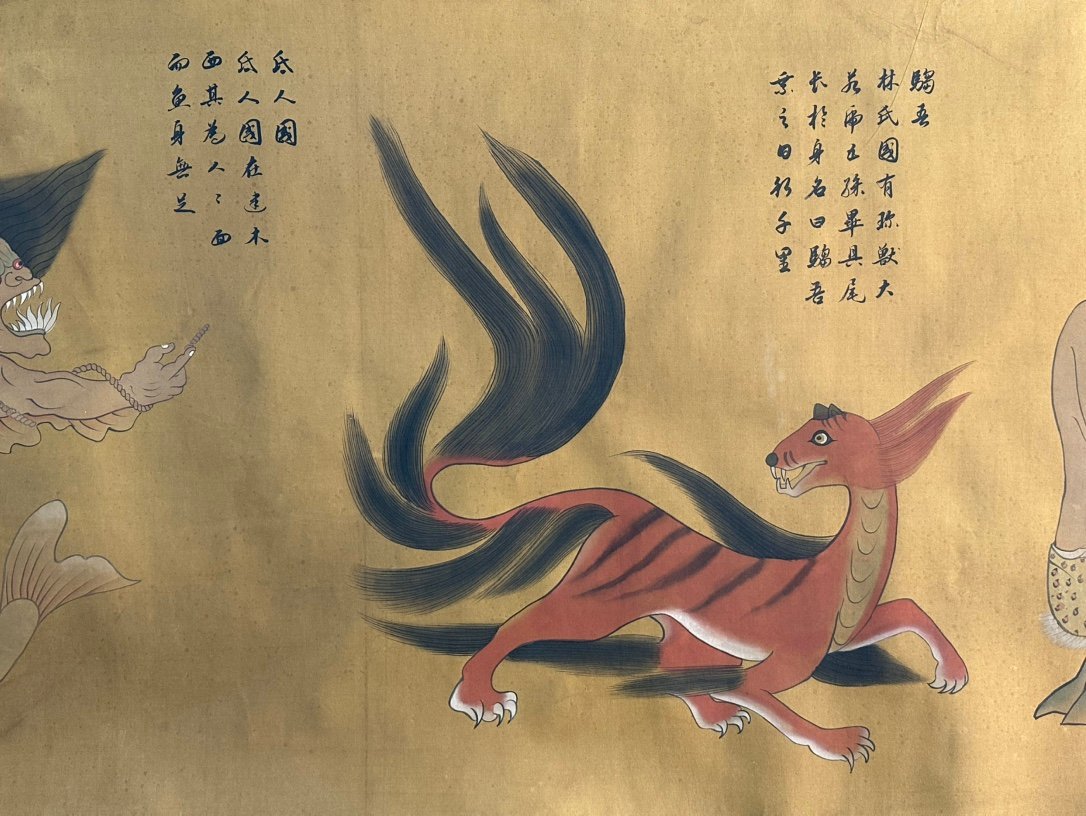 騶吾
林氏國有珍獸大
若虎五綵畢具尾
長於身名曰騶吾
乘之日行千里
氐人國
氐人國在建木
西其為人〻面
而魚身無足